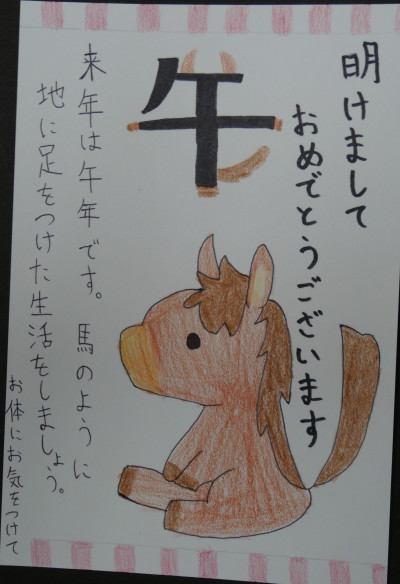 明けまして
おめでとうございます
午
来年は午年です。馬のように
地に足をつけた生活をしましょう。
お体にお気をつけて